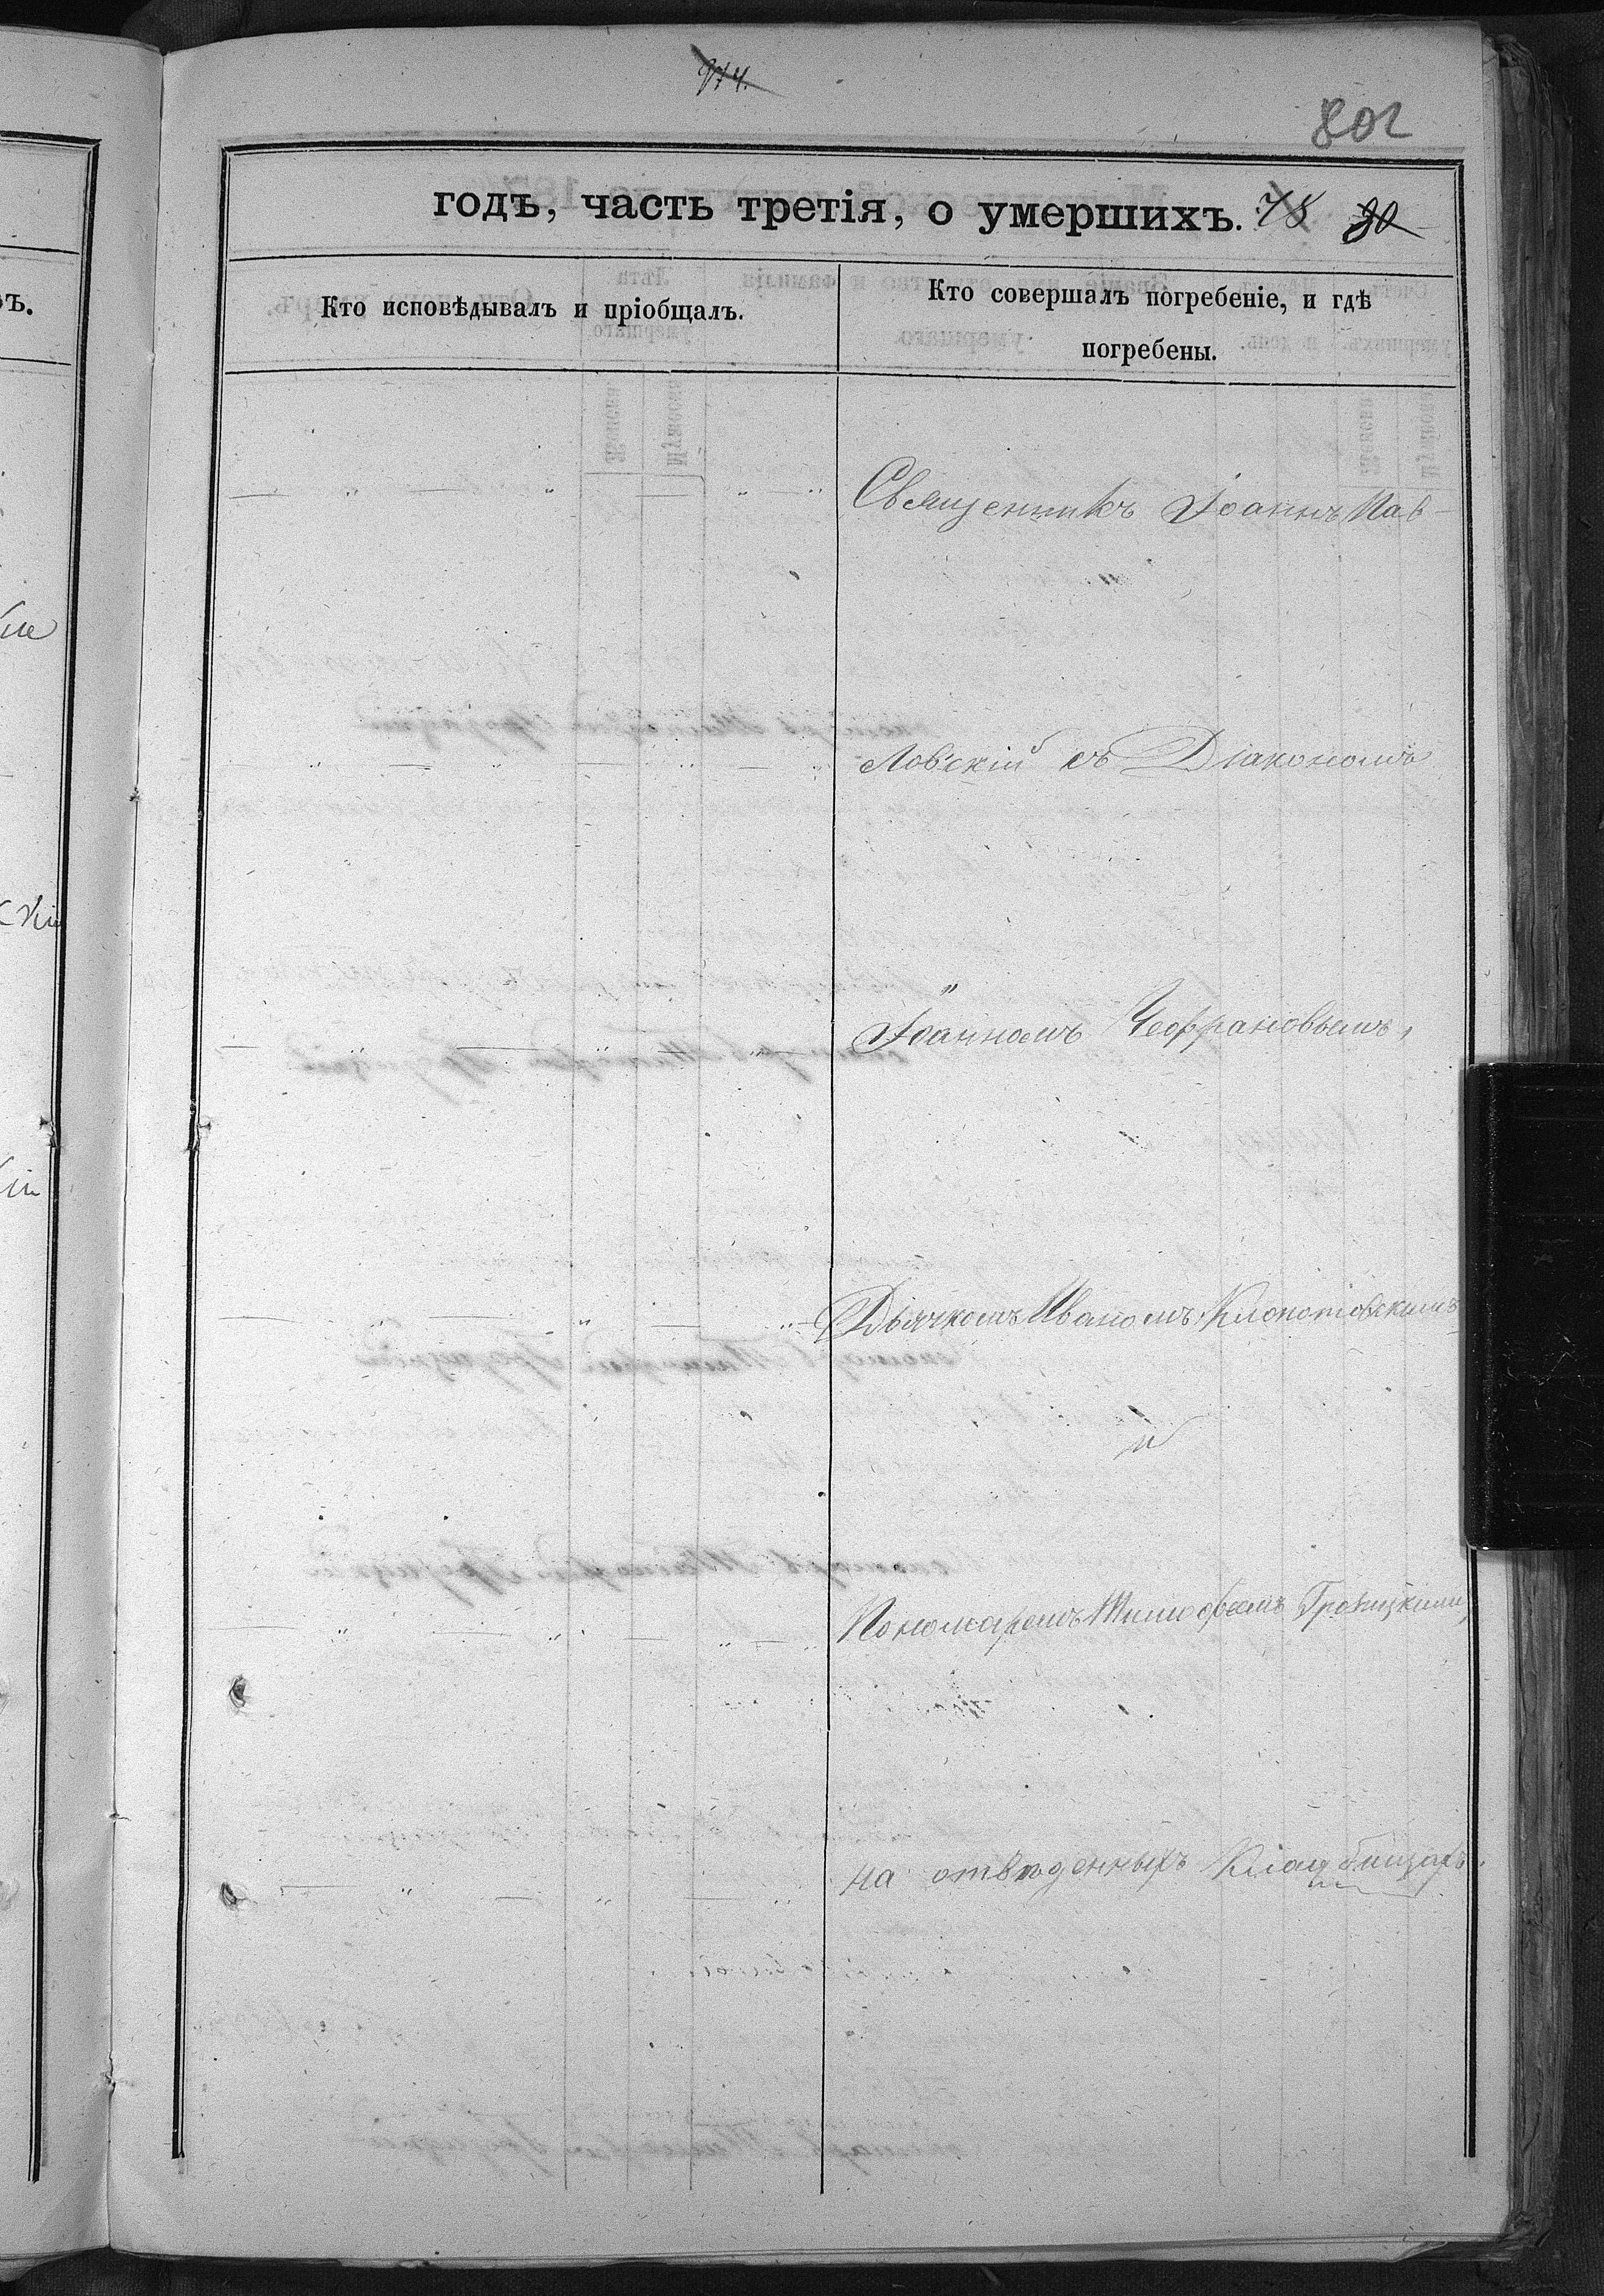 974.
802
годъ, часть третія, о умершихъ. 78 80
Кто исповѣдывалъ и пріобщалъ.
Кто совершалъ погребеніе, и гдѣ
погребены.
Священникъ Іоаннъ Пав-
ловскій съ Діакономъ
Іоанномъ Чефрановымъ,
Дьячкомъ Иваномъ Клопотовскимъ
и
Пономаремъ Тимофеемъ Грозицкимъ,
на отведенныхъ Кладбищахъ.